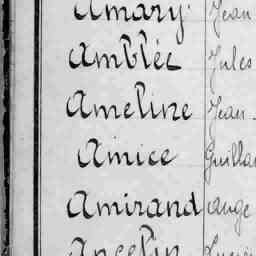 Amary Jean
Amblée Jules
Ameline Jean
Amice
Amirand Ange
Ancelin